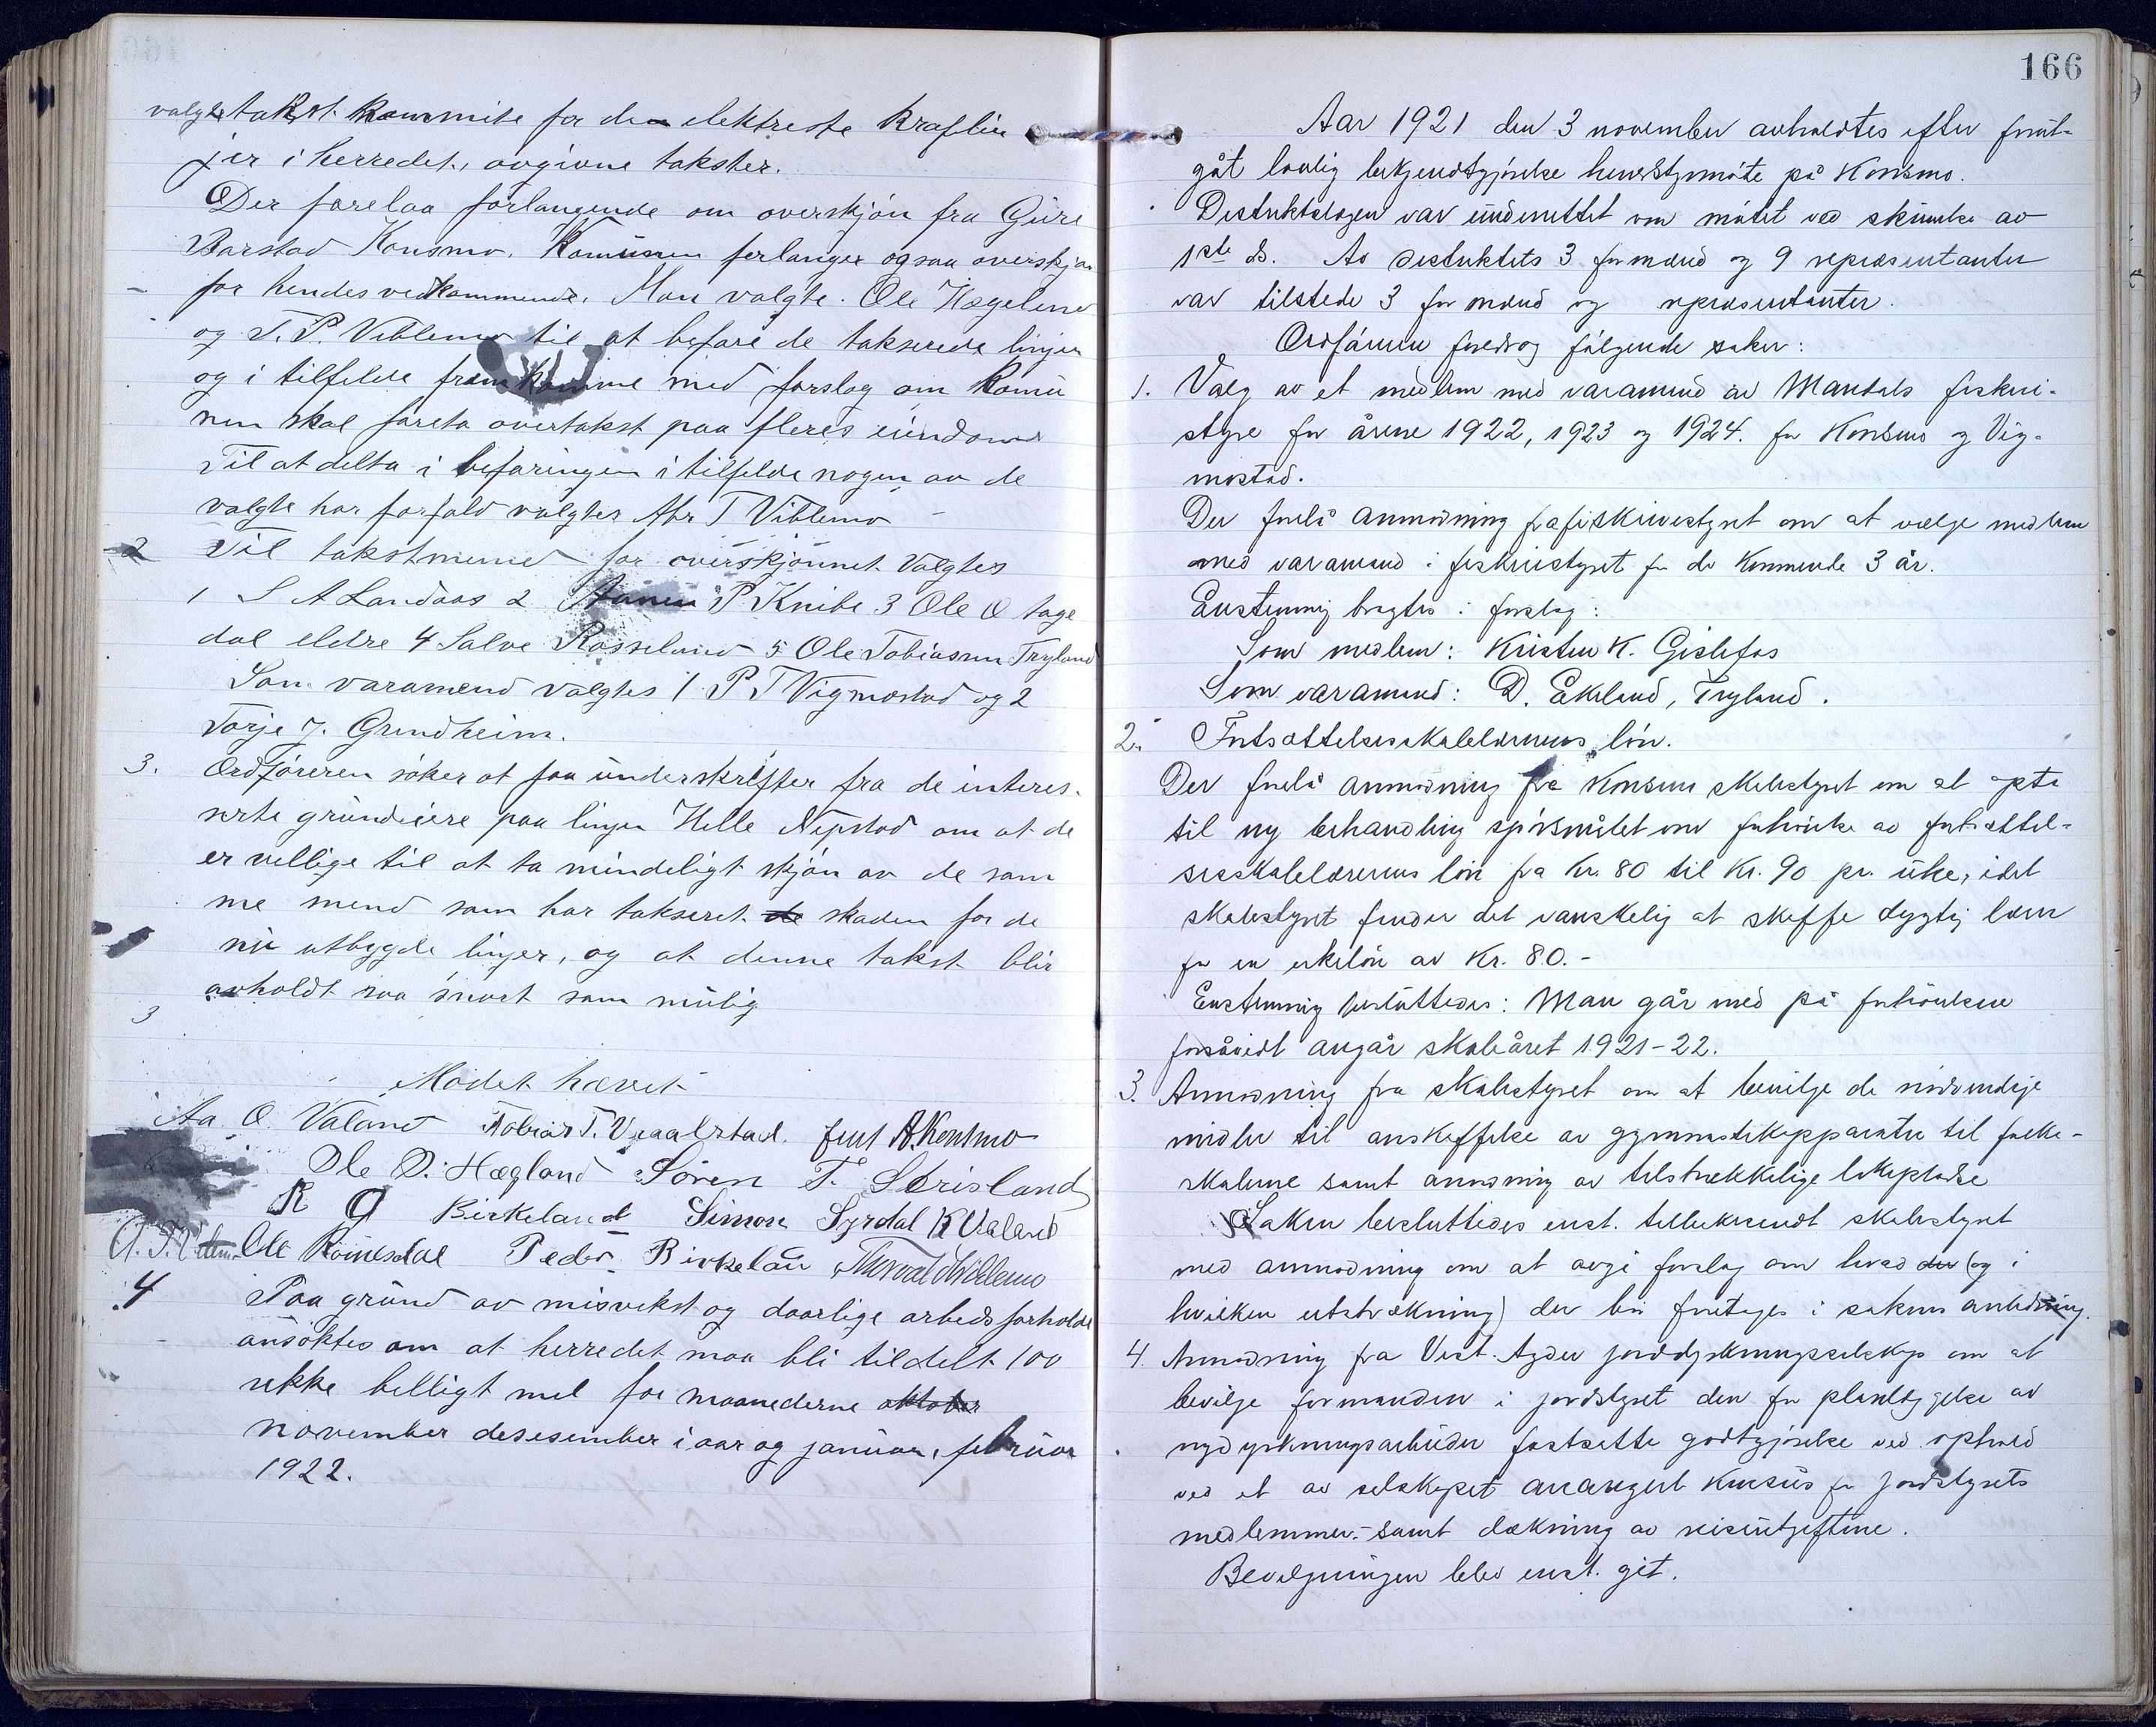 valgte takst kommite for de elektreste kraflin
jer i herredet, avgivne takster.
Der forelaa forlangende om overskjøn fra Gure
Barstad Konsmo. Komunen forlanger ogsaa overskjøn
for hendes vedkommende. Man valgte. Ole Hægeland
og T. P. Viblemo til at befare de takserede linjer
og i tilfelde fremkomme med forslag om komu
nen skal foreta overtakst paa fleres eiendome
Til at delta i befaringen i tilfelde nogen av de
valgte har forfald valgtes Abr T Viblemo
2 Til takstmend for overskjønnet Valgtes
1 S A Landaas 2 P Knibe 3 Ole O tage
dal eldre 4 Salve Rosseland 5 Ole Tobiasen Tryland
Som varamend valgtes 1 P T Vigmostad og 2
Torje J. Grundheim.
3. Ordføreren søker at faa underskrifter fra de interes-
serte grundeiere paa linjen Helle Nepstad om at de
er vellige til at ta mindeligt skjøn av de sam
me mend som har takseret de skaden for de
nu utbygde linjer, og at denne takst blir
avholdt saa snart som mulig
3
Mødet hævet
Aa O. Valand Tobias T. Vraalstad. Jens A. Konsmo
Ole O. Hægland Søren T. Skrisland
R O Birkeland Simon Syrdal K Valand
Ole Romesdal Peder Birkelan Thorvald Viblemo
4 Paa grund av misvekst og daarlige arbedsforholde
ansøktes om at herredet maa bli tildelt 100
sekke billigt mel for maanederne oktober
november desesember i aar og januar, februar
1922.
166
Aar 1921 den 3 november avholdtes efter forut-
gåt lovlig bekjendtgjørelse herredsstyremøte på Konsmo.
Destriktslægen var underrettet om møtet ved skrivelse av
1ste ds. Av destriktets 3 formænd og 9 repræsentanter
var tilstede 3 formænd og repræsentanter.
Ordføreren foredrog følgende saker:
1. Valg av et medlem med varamand av Mandals fiskeri-
styre for årene 1922, 1923 og 1924. for Konsmo og Vig-
mostad.
Der forelå anmodning fra fiskeristyret om at vælge medlem
med varamand i fiskeristyret for de kommende 3 år.
Enstemmig bragtes i forslag:
Som medlem: Kristen K. Gislefos
Som varamand: D. Ekeland, Tryland.
2. Fortsættelsesskolelærernes løn.
Der forelå anmodning fra Konsmo skolestyret om at opta
til ny behandling spørsmålet om forhøielse av fortsættel-
sesskolelærernes løn fra kr. 80 til kr. 90 pr. uke, idet
skolestyret finder det vanskelig at skaffe dygtig lærer
for en ukeløn av kr. 80.-
Enstemmig besluttedes: Man går med på forhøielsen
forsåvidt angår skoleåret 1921-22.
3. Anmodning fra skolestyret om at bevilge de nødvendige
midler til anskaffelse av gymnastikapparater til folke-
skolerne samt anvisning av tilstrækkelige lekeplasse
Saken besluttedes enst. tilbakesendt skolestyret
med anmodning om at avgi forslag om hvad der (og i
hvilken utstrækning) der bør foretages i sakens anledning.
4. Anmodning fra Vest-Agder jorddyrkningsselskap om at
bevilge formanden i jordstyret den for planlæggelse av
nydyrkningsarbeider fastsatte godtgjørelse ved ophold
ved et av selskapet arrangert kursus for jordstyrets
medlemmer, samt dækning av reiseutgifterne.
Bevilgningen blev enst. git.